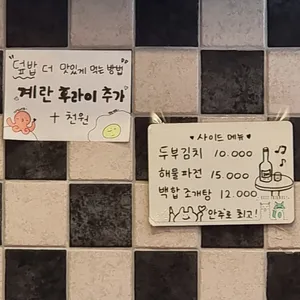 덮밥 더 맛있게 먹는 방법
계란 후라이 추가
+ 천원
♥ 사이드 메뉴 ♥
두부김치 10.000
해물파전 15.000
백합 조개탕 12.000
안주로 최고!